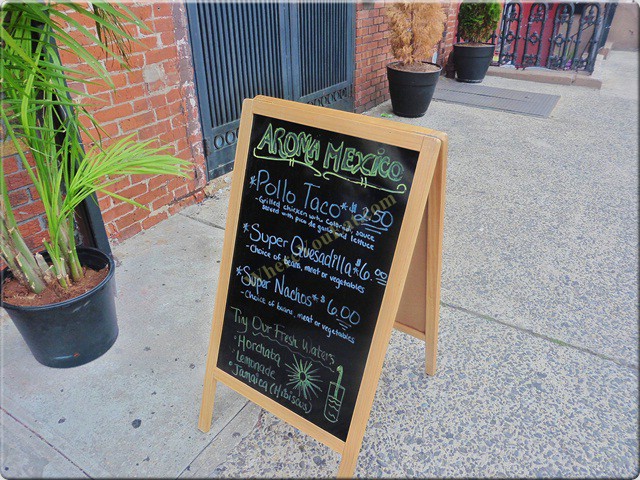 AROMA MEXICO
*Pollo Taco* $2.50
-Grilled chicken with colorful sauce
served with pico de gallo and lettuce
*Super Quesadilla* $6.00
-Choice of beans, meat or vegetables
*Super Nachos* $6.00
-Choice of beans, meat or vegetables
Try Our Fresh Waters
•Horchata
•Lemonade
•Jamaica (Hibiscus)